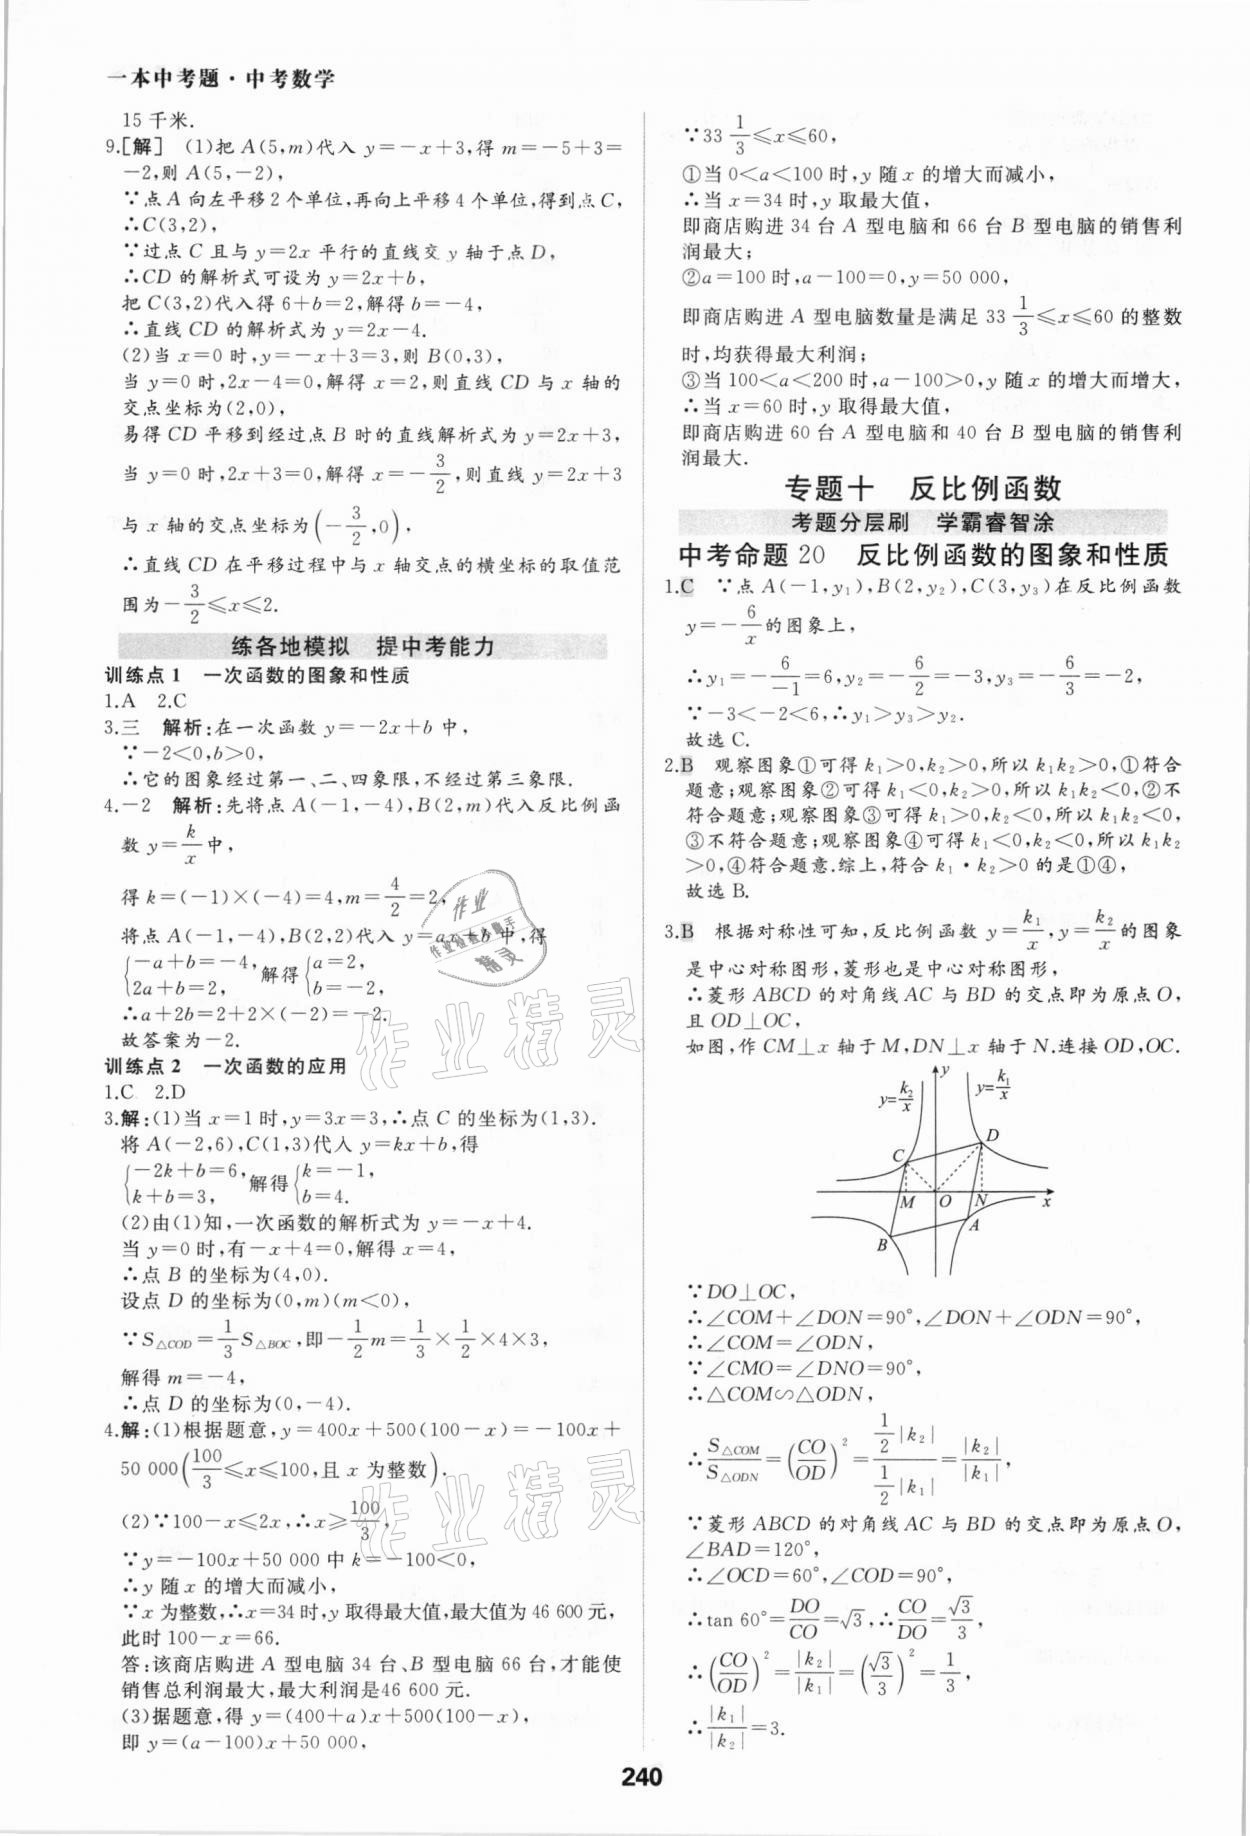 一本中考题·中考数学
15千米.
9.[解] (1)把A(5,m)代入y=-x+3,得m=-5+3=
-2,则A(5,-2),
∵点A向左平移2个单位,再向上平移4个单位,得到点C,
∴C(3,2),
∵过点C且与y=2x平行的直线交y轴于点D,
∴CD的解析式可设为y=2x+b,
把C(3,2)代入得6+b=2,解得b=-4,
∴直线CD的解析式为y=2x-4.
(2)当x=0时,y=-x+3=3,则B(0,3),
当y=0时,2x-4=0,解得x=2,则直线CD与x轴的
交点坐标为(2,0),
易得CD平移到经过点B时的直线解析式为y=2x+3,
当y=0时,2x+3=0,解得x=-3/2,则直线y=2x+3
与x轴的交点坐标为(-3/2,0),
∴直线CD在平移过程中与x轴交点的横坐标的取值范
围为-3/2≤x≤2.
练各地模拟 提中考能力
训练点1 一次函数的图象和性质
1.A 2.C
3.三 解析:在一次函数y=-2x+b中,
∵-2<0,b>0,
∴它的图象经过第一、二、四象限,不经过第三象限.
4.-2 解析:先将点A(-1,-4),B(2,m)代入反比例函
数y=k/x中,
得k=(-1)×(-4)=4,m=4/2=2,
将点A(-1,-4),B(2,2)代入y=ax+b中,得
{-a+b=-4, 2a+b=2, 解得{a=2, b=-2,
∴a+2b=2+2×(-2)=-2.
故答案为-2.
训练点2 一次函数的应用
1.C 2.D
3.解:(1)当x=1时,y=3x=3,∴点C的坐标为(1,3).
将A(-2,6),C(1,3)代入y=kx+b,得
{-2k+b=6, k+b=3, 解得{k=-1, b=4.
(2)由(1)知,一次函数的解析式为y=-x+4.
当y=0时,有-x+4=0,解得x=4,
∴点B的坐标为(4,0).
设点D的坐标为(0,m)(m<0),
∵S△COD=1/3S△BOC,即-1/2m=1/3×1/2×4×3,
解得m=-4,
∴点D的坐标为(0,-4).
4.解:(1)根据题意,y=400x+500(100-x)=-100x+
50 000(100/3≤x≤100,且x为整数).
(2)∵100-x≤2x,∴x≥100/3,
∵y=-100x+50 000中k=-100<0,
∴y随x的增大而减小,
∵x为整数,∴x=34时,y取得最大值,最大值为46 600元,
此时100-x=66.
答:该商店购进A型电脑34台、B型电脑66台,才能使
销售总利润最大,最大利润是46 600元.
(3)据题意,得y=(400+a)x+500(100-x),
即y=(a-100)x+50 000,
∵33 1/3≤x≤60,
①当0<a<100时,y随x的增大而减小,
∴当x=34时,y取最大值,
即商店购进34台A型电脑和66台B型电脑的销售利
润最大;
②a=100时,a-100=0,y=50 000,
即商店购进A型电脑数量是满足33 1/3≤x≤60的整数
时,均获得最大利润;
③当100<a<200时,a-100>0,y随x的增大而增大,
∴当x=60时,y取得最大值,
即商店购进60台A型电脑和40台B型电脑的销售利
润最大.
专题十 反比例函数
考题分层刷 学霸睿智涂
中考命题20 反比例函数的图象和性质
1.C ∵点A(-1,y₁),B(2,y₂),C(3,y₃)在反比例函数
y=-6/x的图象上,
∴y₁=-6/-1=6,y₂=-6/2=-3,y₃=-6/3=-2,
∵-3<-2<6,∴y₁>y₃>y₂.
故选C.
2.B 观察图象①可得k₁>0,k₂>0,所以k₁k₂>0,①符合
题意;观察图象②可得k₁<0,k₂>0,所以k₁k₂<0,②不
符合题意;观察图象③可得k₁>0,k₂<0,所以k₁k₂<0,
③不符合题意;观察图象④可得k₁<0,k₂<0,所以k₁k₂
>0,④符合题意.综上,符合k₁·k₂>0的是①④,
故选B.
3.B 根据对称性可知,反比例函数y=k₁/x,y=k₂/x的图象
是中心对称图形,菱形也是中心对称图形,
∴菱形ABCD的对角线AC与BD的交点即为原点O,
且OD⊥OC,
如图,作CM⊥x轴于M,DN⊥x轴于N.连接OD,OC.
y
y=k₂/x
y=k₁/x
D
C
M
O
N
x
A
B
∵DO⊥OC,
∴∠COM+∠DON=90°,∠DON+∠ODN=90°,
∴∠COM=∠ODN,
∵∠CMO=∠DNO=90°,
∴△COM∽△ODN,
∴S△COM/S△ODN=(CO/OD)²=1/2|k₂|/1/2|k₁|=|k₂|/|k₁|,
∵菱形ABCD的对角线AC与BD的交点即为原点O,
∠BAD=120°,
∴∠OCD=60°,∠COD=90°,
∴tan 60°=DO/CO=√3,∴CO/DO=√3/3,
∴(CO/OD)²=|k₂|/|k₁|=(√3/3)²=1/3,
∴|k₁|/|k₂|=3.
240
作业
作业检查小助手
精灵
作业精灵
作业精灵